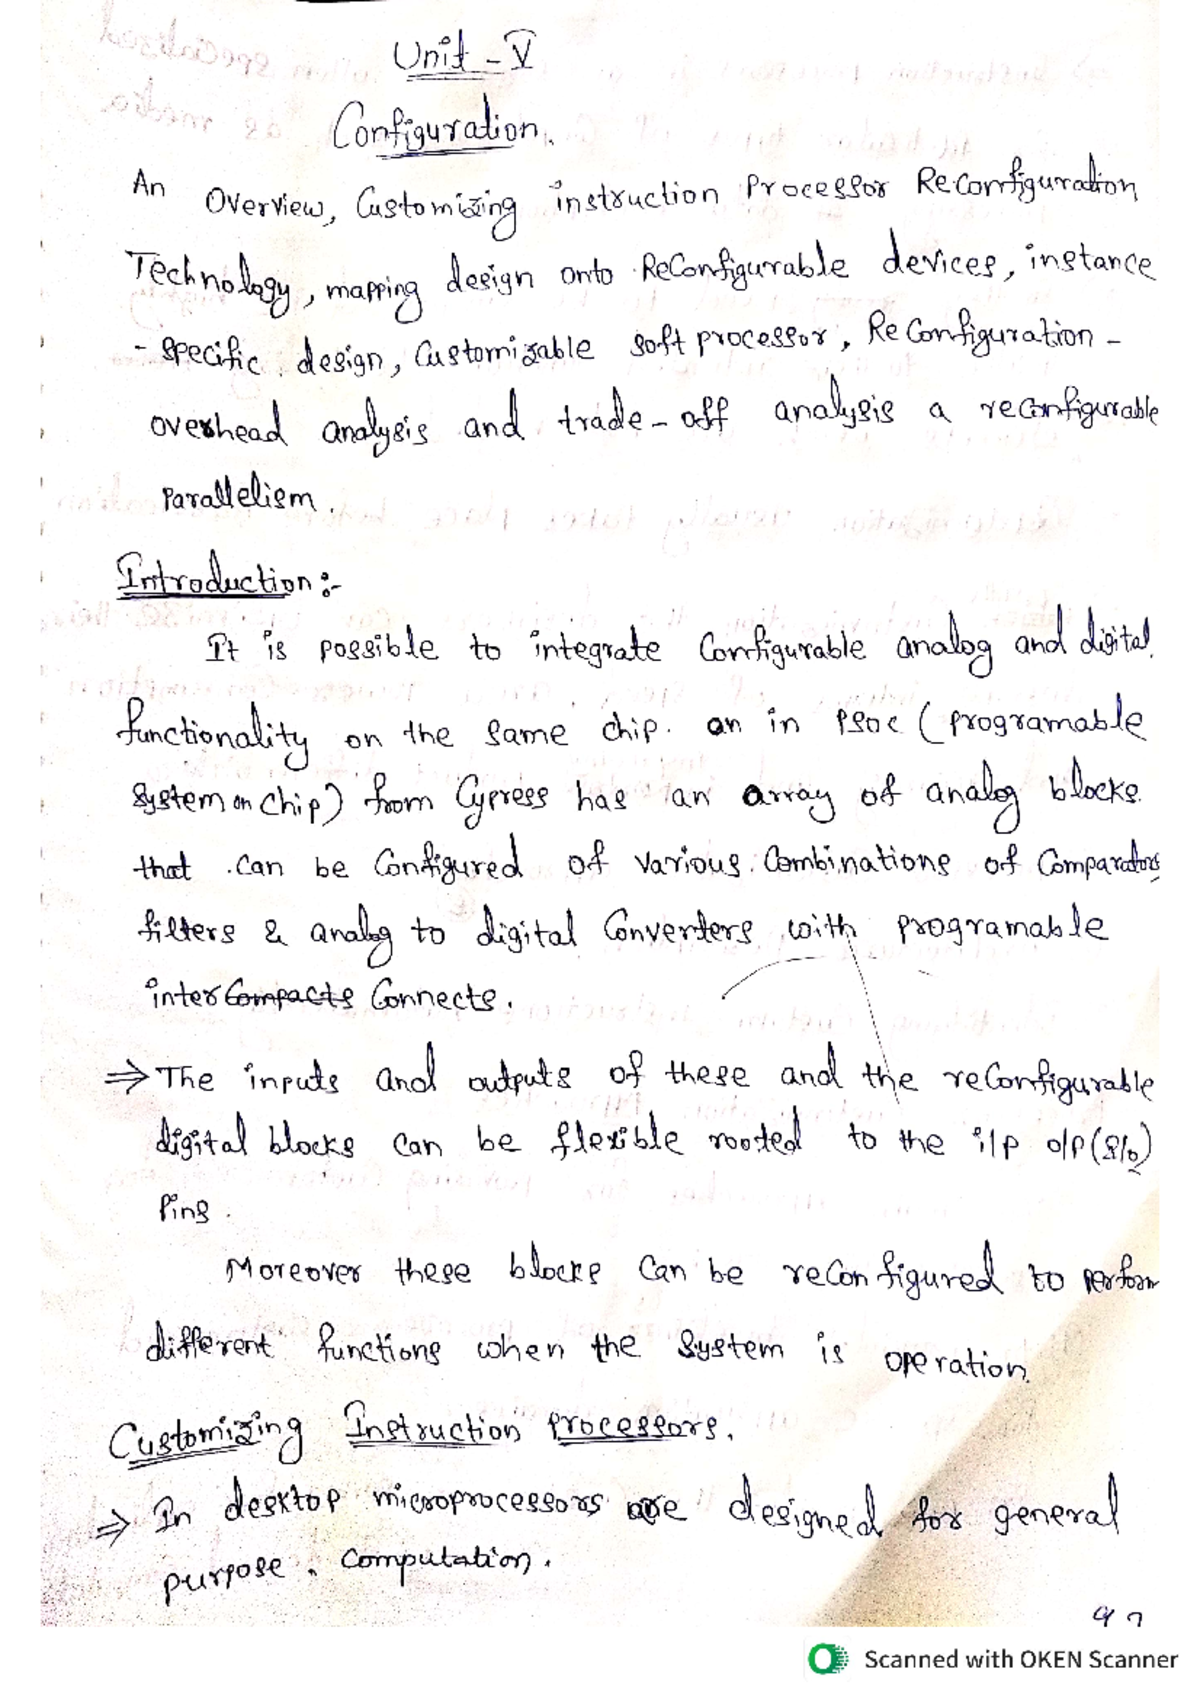 Unit - V
Configuration.
An Overview, Customizing instruction Processor ReConfiguration
Technology, mapping design onto ReConfigurable devices, instance
- specific design, Customizable soft processor, ReConfiguration -
overhead analysis and trade-off analysis a reconfigurable
Parallelism.
Introduction :-
It is possible to integrate Configurable analog and digital
functionality on the same chip. an in PSOC (programable
System on Chip) from Cypress has an array of analog blocks.
that can be Configured of various Combinations of Comparators
filters & analog to digital Converters with programable
inter Compacts Connects.
⇒ The inputs and outputs of these and the reConfigurable
digital blocks can be flexible rooted to the i/p o/p (I/o)
Pins.
Moreover these blocks can be reconfigured to perform
different functions when the System is operation.
Customizing Instruction Processors.
⇒ In desktop microprocessors are designed for general
purpose. computation.
97
Scanned with OKEN Scanner